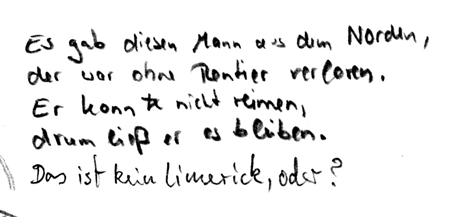 Es gab diesen Mann aus dem Norden,
der war ohne Rentier verloren.
Er konnte nicht reimen,
drum ließ er es bleiben.
Das ist kein Limerick, oder?